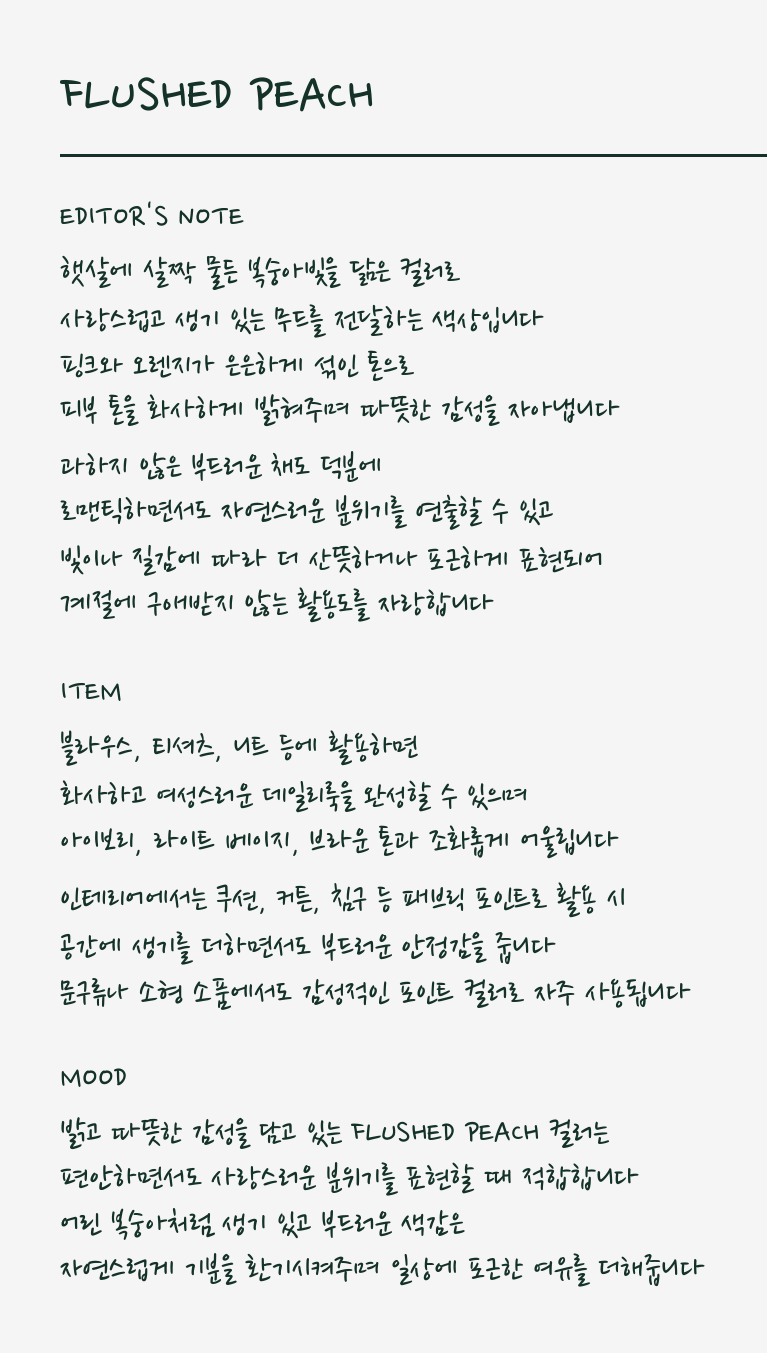 FLUSHED PEACH
EDITOR'S NOTE
햇살에 살짝 물든 복숭아빛을 닮은 컬러로
사랑스럽고 생기 있는 무드를 전달하는 색상입니다
핑크와 오렌지가 은은하게 섞인 톤으로
피부 톤을 화사하게 밝혀주며 따뜻한 감성을 자아냅니다
과하지 않은 부드러운 채도 덕분에
로맨틱하면서도 자연스러운 분위기를 연출할 수 있고
빛이나 질감에 따라 더 산뜻하거나 포근하게 표현되어
계절에 구애받지 않는 활용도를 자랑합니다
ITEM
블라우스, 티셔츠, 니트 등에 활용하면
화사하고 여성스러운 데일리룩을 완성할 수 있으며
아이보리, 라이트 베이지, 브라운 톤과 조화롭게 어울립니다
인테리어에서는 쿠션, 커튼, 침구 등 패브릭 포인트로 활용 시
공간에 생기를 더하면서도 부드러운 안정감을 줍니다
문구류나 소형 소품에서도 감성적인 포인트 컬러로 자주 사용됩니다
MOOD
밝고 따뜻한 감성을 담고 있는 FLUSHED PEACH 컬러는
편안하면서도 사랑스러운 분위기를 표현할 때 적합합니다
어린 복숭아처럼 생기 있고 부드러운 색감은
자연스럽게 기분을 환기시켜주며 일상에 포근한 여유를 더해줍니다